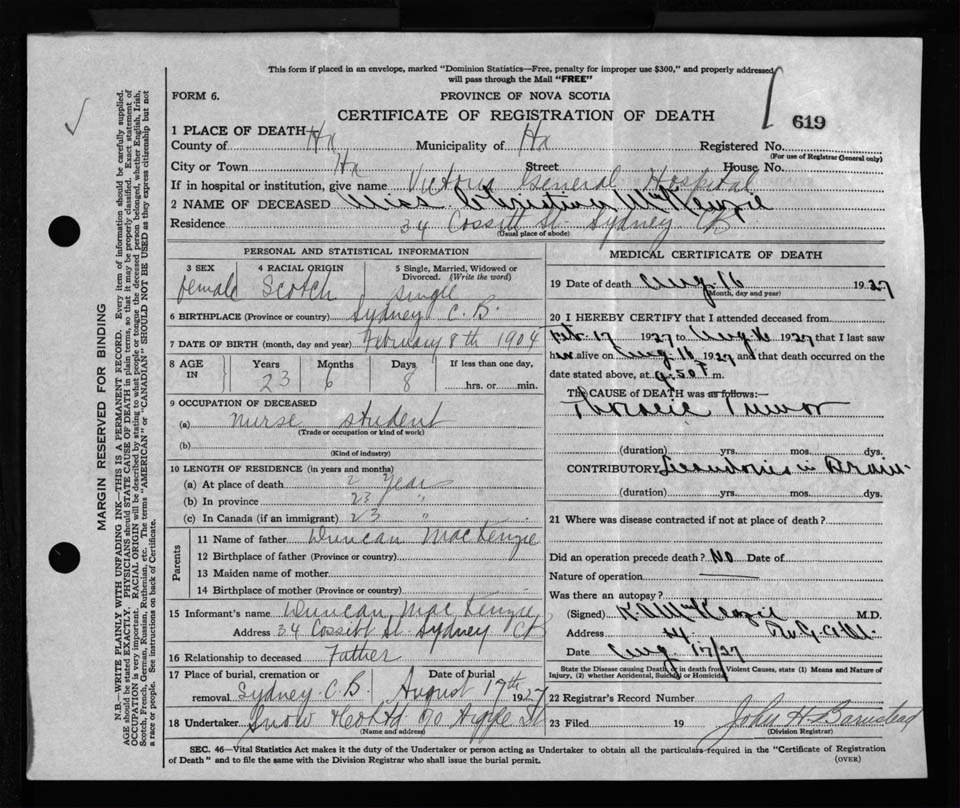 This form if placed in an envelope, marked "Dominion Statistics—Free, penalty for improper use $300," and properly addressed,
will pass through the Mail "FREE"
FORM 6.
PROVINCE OF NOVA SCOTIA
CERTIFICATE OF REGISTRATION OF DEATH
619
1 PLACE OF DEATH—
County of Hx Municipality of Hx Registered No.
(For use of Registrar General only)
City or Town Hx Street House No.
If in hospital or institution, give name Victoria General Hospital
2 NAME OF DECEASED Miss Christina McKenzie
Residence 34 Cossitt St Sydney CB
(Usual place of abode)
PERSONAL AND STATISTICAL INFORMATION
3 SEX 4 RACIAL ORIGIN 5 Single, Married, Widowed or Divorced. (Write the word)
female Scotch single
6 BIRTHPLACE (Province or country) Sydney C. B.
7 DATE OF BIRTH (month, day and year) February 8th 1904
8 AGE IN Years Months Days If less than one day,
23 6 8 hrs. or min.
9 OCCUPATION OF DECEASED
(a) nurse student
(Trade or occupation or kind of work)
(b)
(Kind of industry)
10 LENGTH OF RESIDENCE (in years and months)
(a) At place of death 2 years
(b) In province 23 "
(c) In Canada (if an immigrant) 23 "
Parents
11 Name of father Duncan MacKenzie
12 Birthplace of father (Province or country)
13 Maiden name of mother
14 Birthplace of mother (Province or country)
15 Informant's name Duncan MacKenzie
Address 34 Cossitt St. Sydney CB
16 Relationship to deceased Father
17 Place of burial, cremation or removal Sydney C.B. Date of burial August 17th 1927
18 Undertaker Snow & Co Ltd 90 Argyle St
(Name and address)
MEDICAL CERTIFICATE OF DEATH
19 Date of death Aug. 16 1927
(Month, day and year)
20 I HEREBY CERTIFY that I attended deceased from
Feb. 17 1927 to Aug 16 1927 that I last saw
her alive on Aug. 16 1927 and that death occurred on the
date stated above, at 9.50 P m.
The CAUSE of DEATH was as follows:—
Thoracic Tumor
(duration) yrs. mos. dys.
CONTRIBUTORY Secondaries in Brain
(duration) yrs. mos. dys.
21 Where was disease contracted if not at place of death?
Did an operation precede death? No Date of
Nature of operation
Was there an autopsy?
(Signed) K.A. McKenzie M.D.
Address
Date Aug 17/27
State the Disease causing Death, or in death from Violent Causes, state (1) Means and Nature of
Injury, (2) whether Accidental, Suicidal or Homicidal.
22 Registrar's Record Number
23 Filed 19 John H. Barnstead
(Division Registrar)
SEC. 46—Vital Statistics Act makes it the duty of the Undertaker or person acting as Undertaker to obtain all the particulars required in the "Certificate of Registration
of Death" and to file the same with the Division Registrar who shall issue the burial permit.
(OVER)
MARGIN RESERVED FOR BINDING
N.B.—WRITE PLAINLY WITH UNFADING INK—THIS IS A PERMANENT RECORD. Every item of information should be carefully supplied.
AGE should be stated EXACTLY. PHYSICIANS should STATE CAUSE OF DEATH in plain terms, so that it may be properly classified. Exact statement of
OCCUPATION is very important. RACIAL ORIGIN will be described by stating to what people or tongue the deceased person belonged, whether English, Irish,
Scotch, French, German, Russian, Ruthenian, etc. The terms "AMERICAN" or "CANADIAN" SHOULD NOT BE USED as they express citizenship but not
a race or people. See instructions on back of Certificate.